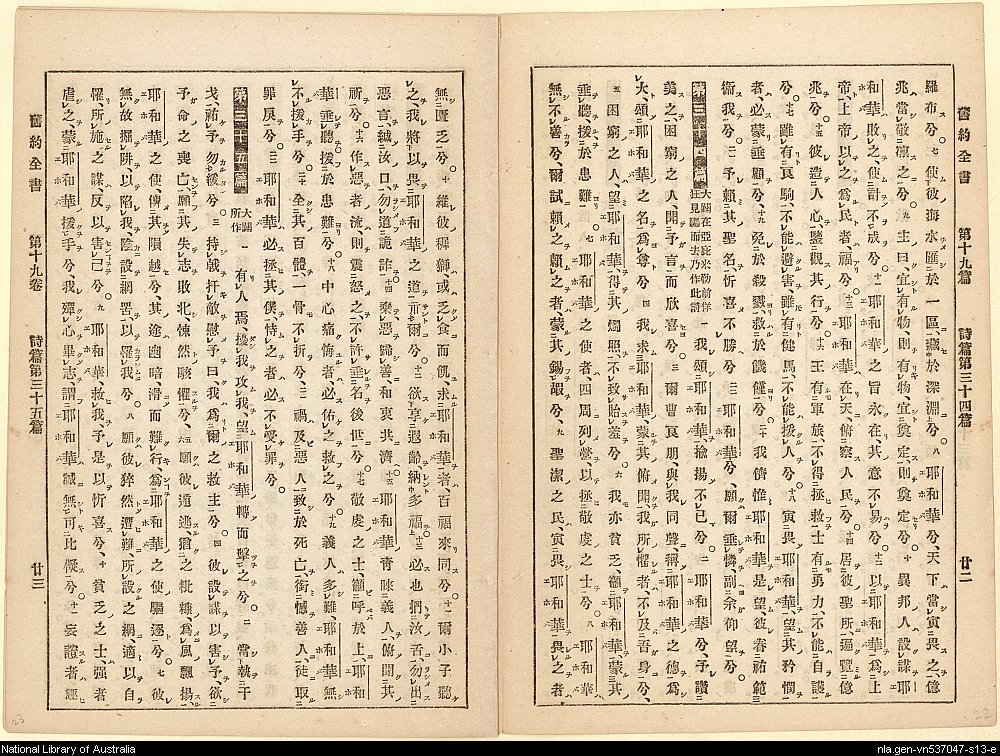 舊約全書 第十九篇 詩篇第三十四篇 廿二
羅布兮。七 使彼海水匯於一區、藏於深淵兮。八 耶和華兮、天下當寅畏之、億
兆當敬凜之兮。九 主曰、宜有物、則有物、宜奠定、則奠定兮。十 異邦人設謀、耶
和華敗之、使計不成兮。十一 耶和華之旨永在、其意不易兮。十二 以耶和華爲上
帝、上帝以之爲民者、福兮。十三 耶和華在天、俯察人民兮。十四 居彼聖所、遍覽億
兆兮。十五 彼造人心、鑒觀其行兮。十六 王有軍旅、不得拯救、士有勇力、不能自護
兮。十七 雖有良駒、不能避害、雖有健馬、不能援人兮。十八 寅畏耶和華、望其矜憫
者、必蒙垂顧兮、十九 免於殺戮、救於饑饉兮。二十 我儕惟耶和華是望、彼眷祐範
衛我兮。二一 予賴其聖名、忻喜不勝兮 二二 耶和華兮、願爾垂憐、副余仰望兮。
第三十四篇 大闢在亞庇米勒前佯狂見驅而去乃作此詩 一 我頌耶和華、揄揚不已兮 二 耶和華兮、予讚
美之、困窮之人、聞予言而欣喜兮。三 爾曹良朋、與我同聲、稱耶和華之德、爲
大、頌耶和華之名、爲尊兮 四 我求耶和華、蒙其俯聞、我所懼者、不及吾身兮、
五 困窮之人、望耶和華、得其燭照、不致貽羞兮。六 我亦貧乏、籲耶和華、蒙其
垂聽、援於患難。七 耶和華之使者、四周列營、以拯敬虔之士兮。八 耶和華
無不盡善兮、爾試賴之、賴之者、蒙其錫嘏兮、九 聖潔之民、寅畏耶和華、畏之者
22
無匱乏兮。十 維彼稚獅、或乏食而飢、求耶和華者、百福來同兮。十一 爾小子聽
之、我將以畏耶和華之道示爾兮。十二 欲享遐齡、納多福、十三 必也捫汝舌、勿出
惡言、緘汝口、勿道詭詐。十四 棄惡歸善、和衷共濟。十五 耶和華青睞義人、俯聞其
祈兮。十六 作惡者流、則震怒之、不許垂名後世兮。十七 敬虔之士、籲呼於上、耶和
華垂聽、援於患難兮。十八 中心痛悔者、必佑之救之兮。十九 義人多難、耶和華無
不援手兮。二十 全其百體、一骨不折兮、二一 禍及惡人、致於死亡、銜憾善人、徒取
罪戾兮。二二 耶和華必拯其僕、恃之者、必不受罪兮。
第三十五篇 大闢所作 一 有人焉、擾我攻我、望耶和華轉而擊之兮。二 當執干
戈、祐予勿援兮。三 持戟扞敵、慰予曰、我爲爾之救主兮。四 彼設謀以害予、欲
予命之喪亡、願其失志敗北、悚然駭懼兮、五 願彼遁逃、猶之秕糠、爲風飄揚、
耶和華之使、俾其隕越兮、六 其途幽暗、滑而難行、爲耶和華之使驅逐兮。七 彼
無故掘阱以陷我、陰設網罟以罹我兮。八 願彼猝然遭難、所設之網、適以自
罹、所施之謀、反以害己兮。九 耶和華救我、予是以忻喜兮、十 貧乏之士、强者
虐之、蒙耶和華援手兮、我殫心畢志、謂耶和華誠無可比儗兮。十一 妄證者、誣
舊約全書 第十九卷 詩篇第三十五篇 廿三
23
National Library of Australia
nla.gen-vn537047-s13-e